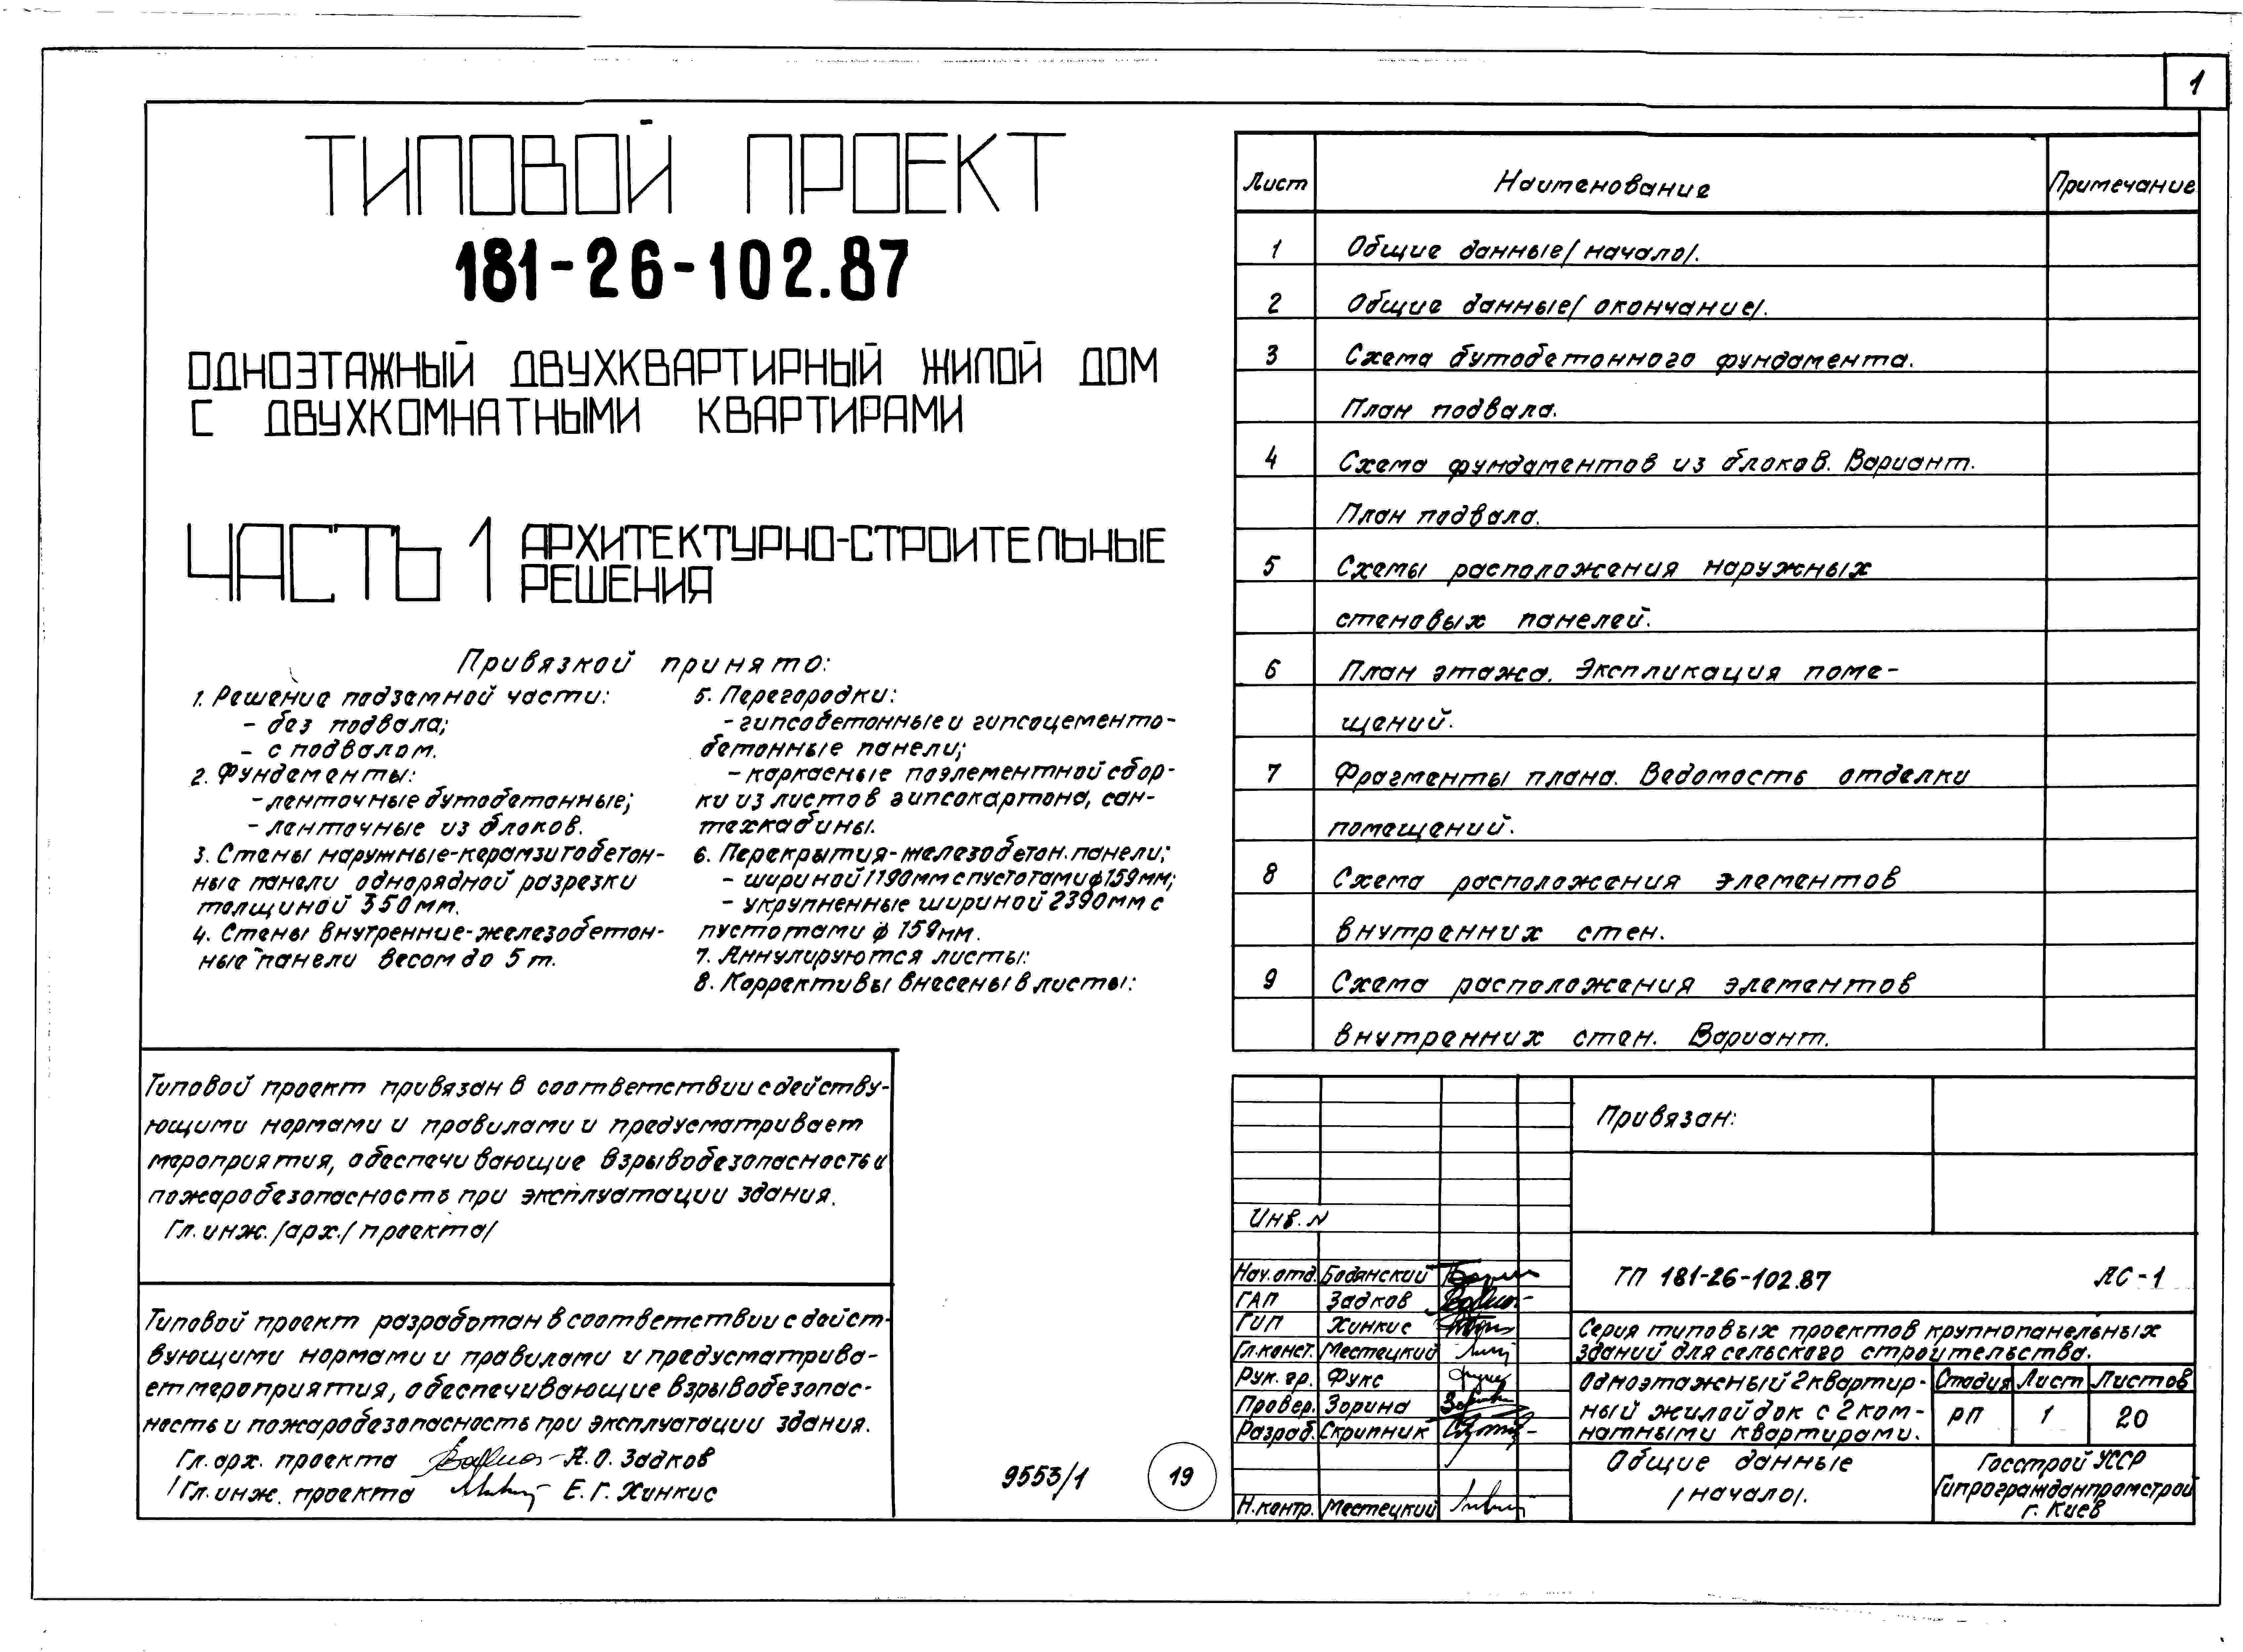 1
ТИПОВОЙ ПРОЕКТ
181-26-102.87
ОДНОЭТАЖНЫЙ ДВУХКВАРТИРНЫЙ ЖИЛОЙ ДОМ
С ДВУХКОМНАТНЫМИ КВАРТИРАМИ
ЧАСТЬ 1 АРХИТЕКТУРНО-СТРОИТЕЛЬНЫЕ
РЕШЕНИЯ
Привязкой принято:
1. Решение подземной части:
- без подвала;
- с подвалом.
2. Фундаменты:
- ленточные бутобетонные;
- ленточные из блоков.
3. Стены наружные-керамзитобетон-
ные панели однорядной разрезки
толщиной 350мм.
4. Стены внутренние-железобетон-
ные панели весом до 5 т.
5. Перегородки:
- гипсобетонные и гипсоцементо-
бетонные панели;
- каркасные поэлементной сбор-
ки из листов гипсокартона, сан-
техкабины.
6. Перекрытия-железобетон. панели;
- шириной 1190мм с пустотами ф159мм;
- укрупненные шириной 2390мм с
пустотами ф 159мм.
7. Аннулируются листы:
8. Коррективы внесены в листы:
Типовой проект привязан в соответствии с действу-
ющими нормами и правилами и предусматривает
мероприятия, обеспечивающие взрывобезопасность и
пожаробезопасность при эксплуатации здания.
Гл. инж. /арх./ проекта/
Типовой проект разработан в соответствии с дейст-
вующими нормами и правилами и предусматрива-
ет мероприятия, обеспечивающие взрывобезопас-
ность и пожаробезопасность при эксплуатации здания.
Гл. арх. проекта А.О. Задков
/Гл. инж. проекта Е.Г. Хинкис
9553/1
19
Лист Наименование Примечание
1 Общие данные/начало/.
2 Общие данные/окончание/.
3 Схема бутобетонного фундамента.
План подвала.
4 Схема фундаментов из блоков. Вариант.
План подвала.
5 Схемы расположения наружных
стеновых панелей.
6 План этажа. Экспликация поме-
щений.
7 Фрагменты плана. Ведомость отделки
помещений.
8 Схема расположения элементов
внутренних стен.
9 Схема расположения элементов
внутренних стен. Вариант.
Привязан:
Инв. N
Нач. отд. Бодянский
ГАП Задков
ГИП Хинкис
Гл. конст. Местецкий
Рук. гр. Фукс
Провер. Зорина
Разраб. Скрипник
Н. контр. Местецкий
ТП 181-26-102.87 АС-1
Серия типовых проектов крупнопанельных
зданий для сельского строительства.
Одноэтажный 2квартир-
ный жилой док с 2ком-
натными квартирами.
Стадия Лист Листов
РП 1 20
Общие данные
/начало/.
Госстрой УССР
Гипрогражданпромстрой
г. Киев